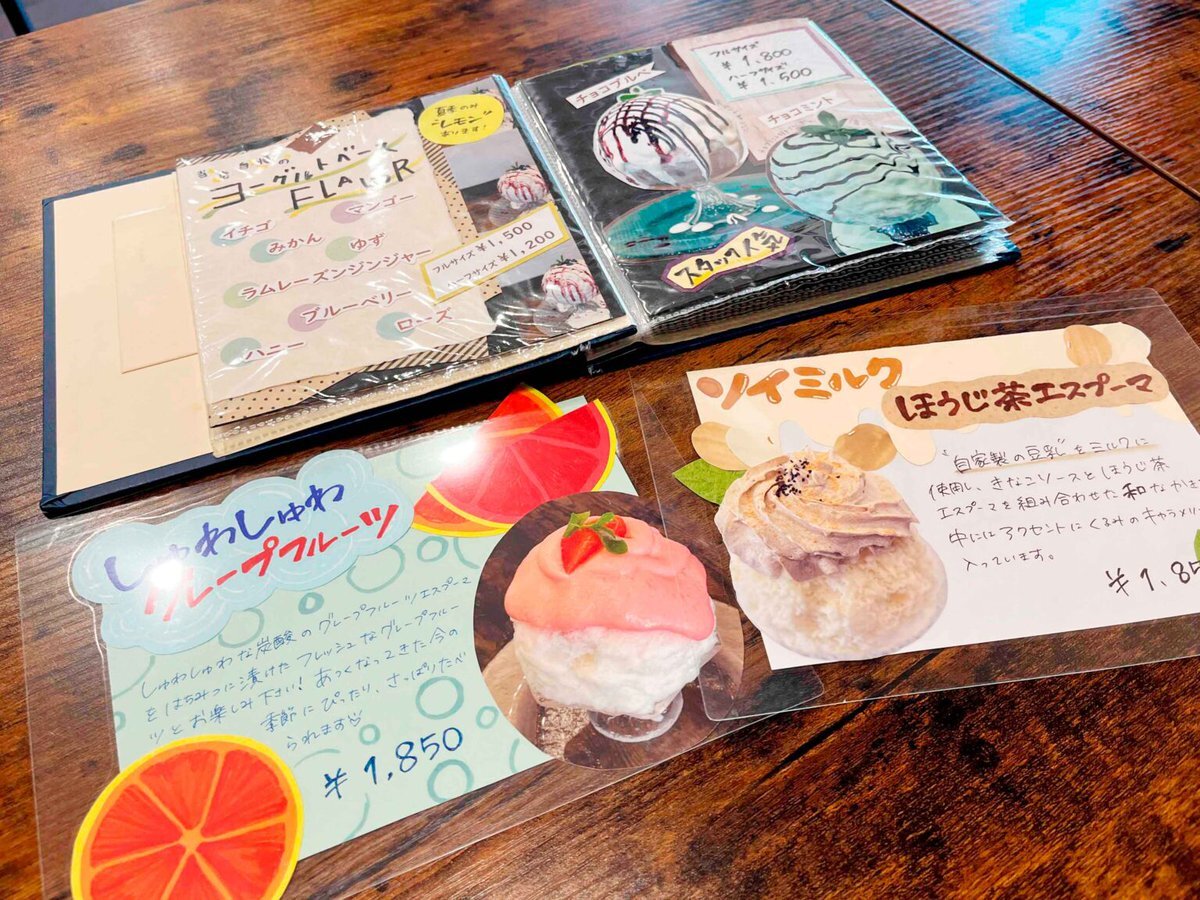 ヨーグルトベース
FLAVOR
イチゴ
マンゴー
みかん
ゆず
ラムレーズンジンジャー
ブルーベリー
ローズ
ハニー
夏季のみ
"レモン"
あります!
フルサイズ ¥1,500
ハーフサイズ ¥1,200
フルサイズ
¥1,800
ハーフサイズ
¥1,500
チョコブルベ
チョコミント
スタッフ人気
しゅわしゅわ
グレープフルーツ
しゅわしゅわな炭酸のグレープフルーツエスプーマ
をはちみつに漬けたフレッシュなグレープフルー
ツとお楽しみ下さい!あつくなってきた今の
季節にぴったり、さっぱりたべ
られます
¥1,850
ソイミルク
ほうじ茶エスプーマ
"自家製の豆乳"をミルクに
使用し、きなこソースとほうじ茶
エスプーマを組み合わせた和なかき
中にはアクセントにくるみのキャラメル
入っています。
¥1,85